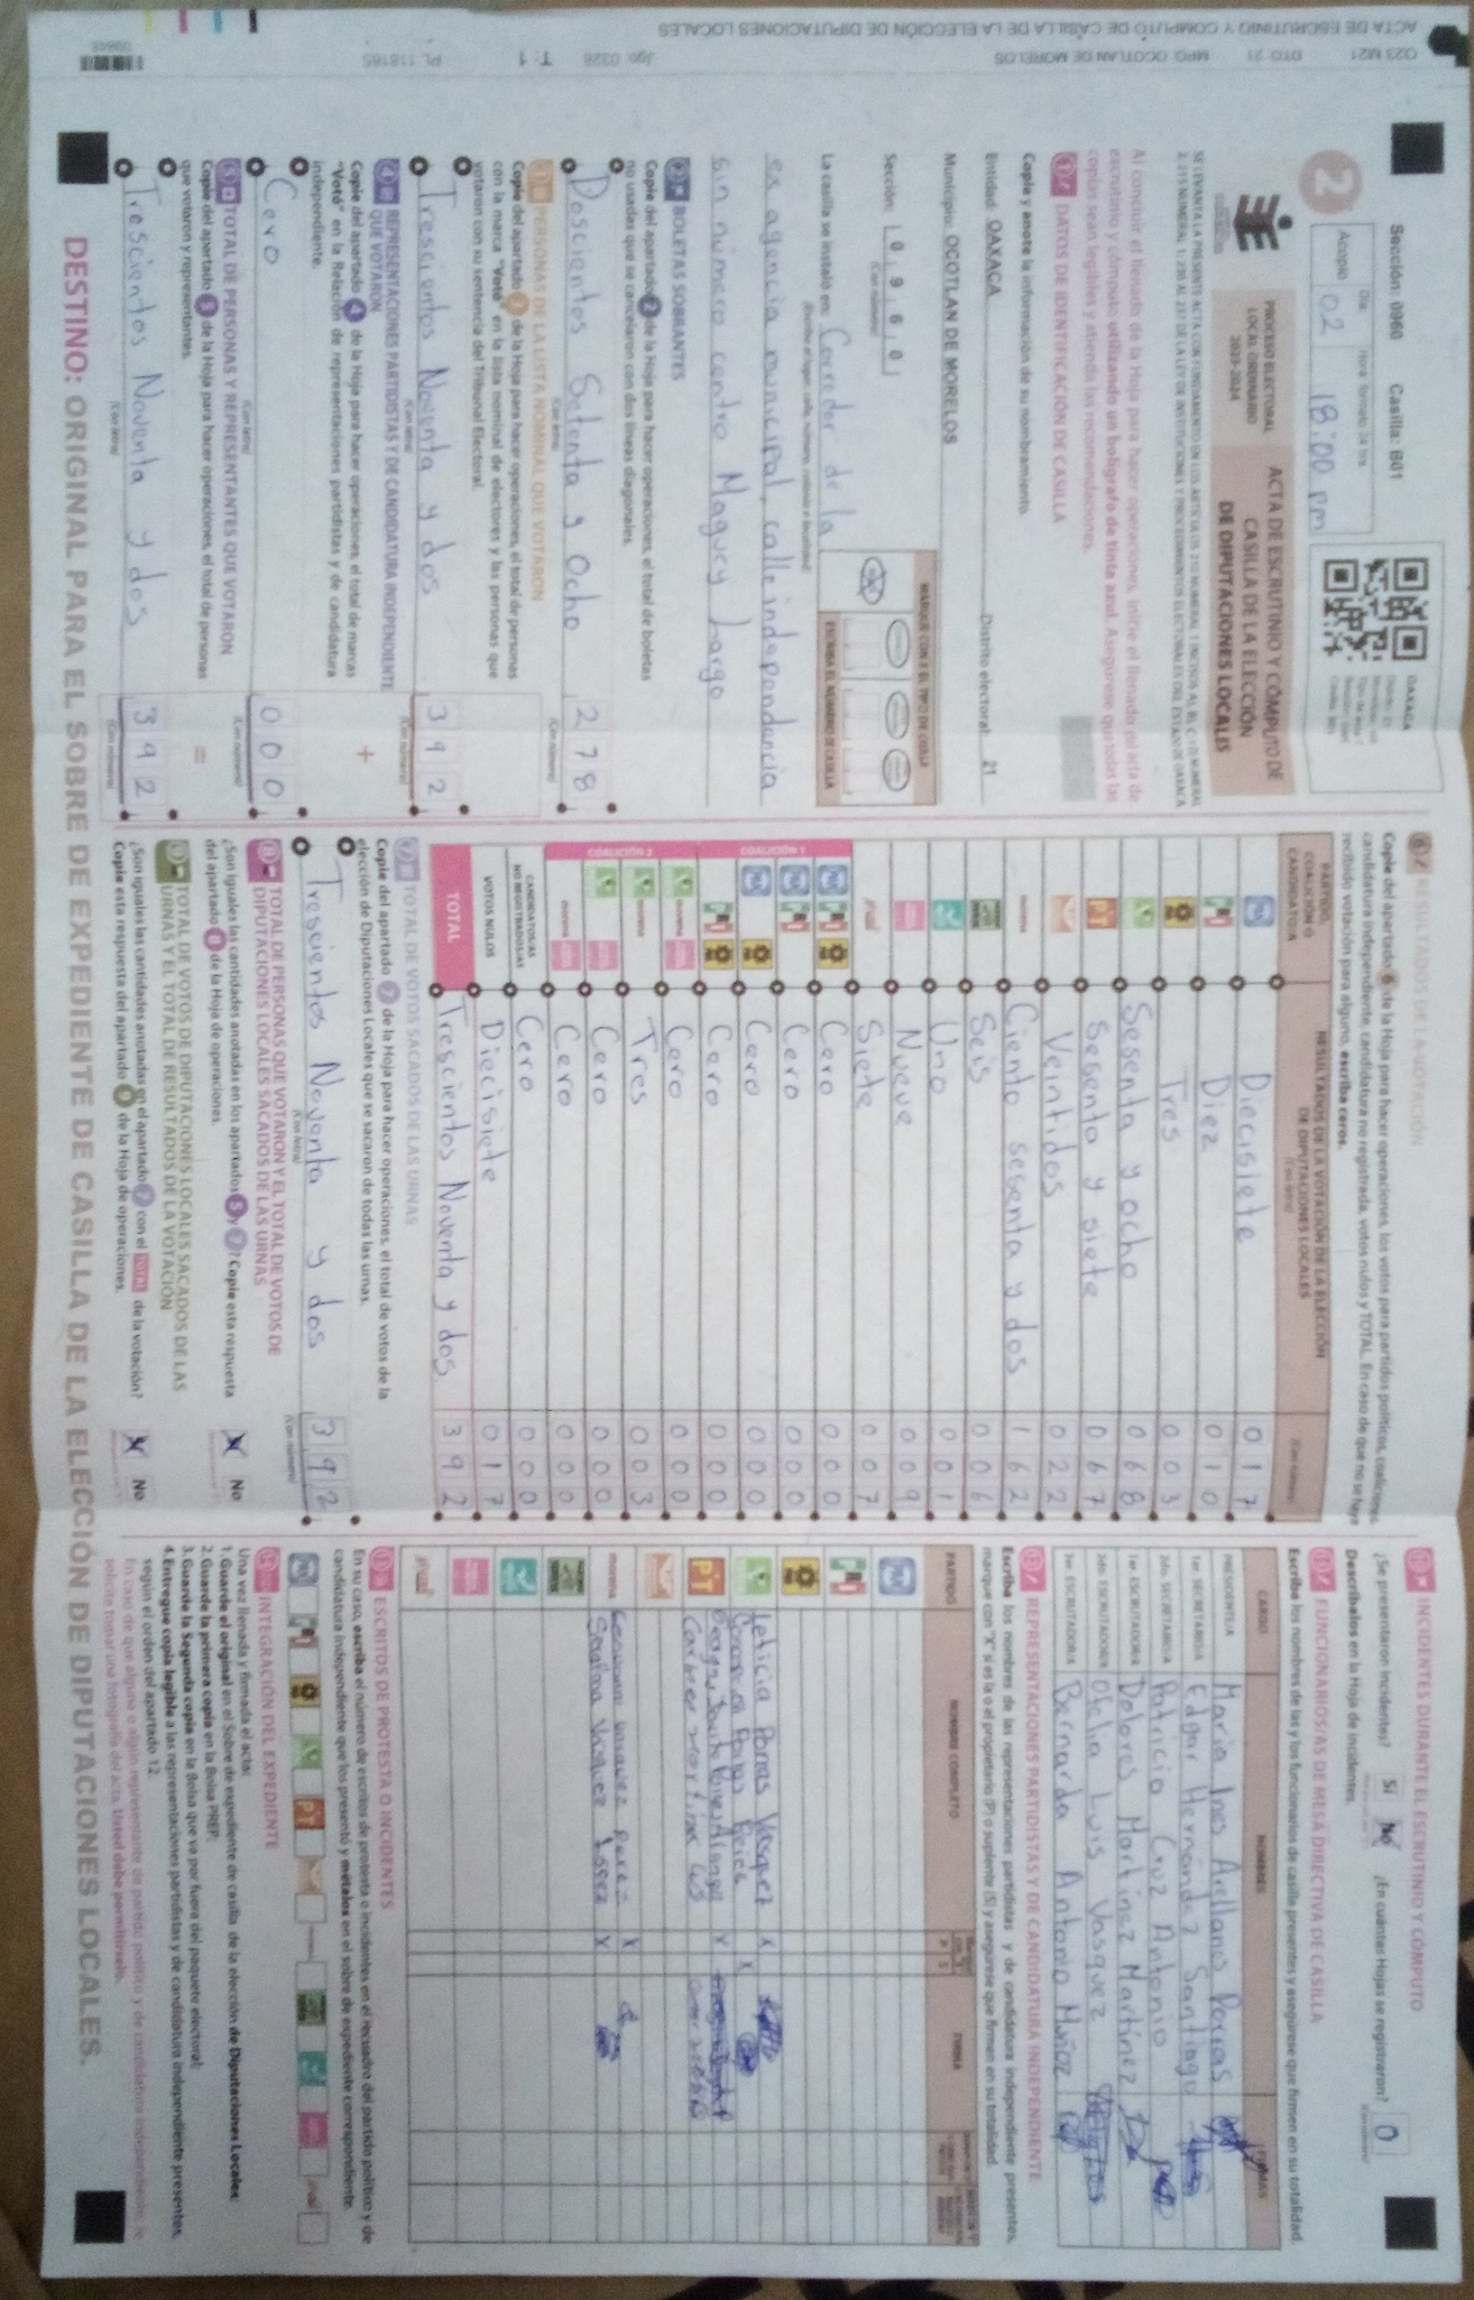 Sección: 0960 Casilla: B01
Acopio 02 18:00 pm
OAXACA
2
PROCESO ELECTORAL LOCAL ORDINARIO 2023-2024
ACTA DE ESCRUTINIO Y CÓMPUTO DE
CASILLA DE LA ELECCIÓN
DE DIPUTACIONES LOCALES
Al concluir el llenado de la Hoja para hacer operaciones, inicie el llenado del acta de
escrutinio y cómputo utilizando un bolígrafo de tinta azul. Asegúrese que todas las
copias sean legibles y atienda las recomendaciones.
1 DATOS DE IDENTIFICACIÓN DE CASILLA
Copie y anote la información de su nombramiento.
Entidad: OAXACA Distrito electoral: 21
Municipio: OCOTLAN DE MORELOS
Sección: 0960
(Con número)
MARQUE CON X EL TIPO DE CASILLA
ESCRIBA EL NÚMERO DE CASILLA
La casilla se instaló en: Corredor de la
ex agencia municipal, calle independencia
sin número centro Maguey Largo
2 BOLETAS SOBRANTES
Copie del apartado 2 de la Hoja para hacer operaciones, el total de boletas
no usadas que se cancelaron con dos líneas diagonales.
Doscientos Setenta y Ocho 278
(Con letra) (Con número)
3 PERSONAS DE LA LISTA NOMINAL QUE VOTARON
Copie del apartado 3 de la Hoja para hacer operaciones, el total de personas
con la marca "Votó" en la lista nominal de electores y las personas que
votaron con su sentencia del Tribunal Electoral.
Trescientos Noventa y dos 392
(Con letra) (Con número)
4 REPRESENTACIONES PARTIDISTAS Y DE CANDIDATURA INDEPENDIENTE
QUE VOTARON
Copie del apartado 4 de la Hoja para hacer operaciones, el total de marcas
"Votó" en la Relación de representaciones partidistas y de candidatura
independiente.
+
Cero 000
(Con letra) (Con número)
5 TOTAL DE PERSONAS Y REPRESENTANTES QUE VOTARON
Copie del apartado 5 de la Hoja para hacer operaciones, el total de personas
que votaron y representantes.
=
Trescientos Noventa y dos 392
(Con letra) (Con número)
6 RESULTADOS DE LA VOTACIÓN
Copie del apartado 6 de la Hoja para hacer operaciones, los votos para partidos políticos, coaliciones,
candidatura independiente, candidatura no registrada, votos nulos y TOTAL. En caso de que no se haya
recibido votación para alguno, escriba ceros.
PARTIDO, COALICIÓN O CANDIDATURA
RESULTADOS DE LA VOTACIÓN DE LA ELECCIÓN
DE DIPUTACIONES LOCALES
Diecisiete 017
Diez 010
Tres 003
Sesenta y ocho 068
PT Sesenta y siete 067
Veintidos 022
morena Ciento sesenta y dos 162
Seis 006
Uno 001
Nueve 009
Siete 007
COALICIÓN 1
Cero 000
Cero 000
Cero 000
Cero 000
COALICIÓN 2
Cero 000
Tres 003
Cero 000
Cero 000
CANDIDATOS/AS NO REGISTRADOS/AS Cero 000
VOTOS NULOS Diecisiete 017
TOTAL Trescientos Noventa y dos 392
7 TOTAL DE VOTOS SACADOS DE LAS URNAS
Copie del apartado 7 de la Hoja para hacer operaciones, el total de votos de la
elección de Diputaciones Locales que se sacaron de todas las urnas.
Trescientos Noventa y dos 392
(Con letra) (Con número)
8 TOTAL DE PERSONAS QUE VOTARON Y EL TOTAL DE VOTOS DE
DIPUTACIONES LOCALES SACADOS DE LAS URNAS
¿Son iguales las cantidades anotadas en los apartados 5 y 7? Copie esta respuesta
del apartado 8 de la Hoja de operaciones. No
9 TOTAL DE VOTOS DE DIPUTACIONES LOCALES SACADOS DE LAS
URNAS Y EL TOTAL DE RESULTADOS DE LA VOTACIÓN
¿Son iguales las cantidades anotadas en el apartado 7 con el TOTAL de la votación?
Copie esta respuesta del apartado 9 de la Hoja de operaciones. No
10 INCIDENTES DURANTE EL ESCRUTINIO Y CÓMPUTO
¿Se presentaron incidentes? Sí No ¿En cuántas Hojas se registraron? 0
Descríbalos en la Hoja de incidentes.
11 FUNCIONARIOS/AS DE MESA DIRECTIVA DE CASILLA
Escriba los nombres de las y los funcionarios de casilla presentes y asegúrese que firmen en su totalidad.
CARGO NOMBRES FIRMAS
PRESIDENTE/A Maria Ines Arellanes Porras
1er. SECRETARIO/A Edgar Hernández Santiago
2do. SECRETARIO/A Patricia Cruz Antonio
1er. ESCRUTADOR/A Dolores Martinez Martínez
2do. ESCRUTADOR/A Ofelia Luis Vasquez
3er. ESCRUTADOR/A Bernarda Antonio Muñoz
12 REPRESENTACIONES PARTIDISTAS Y DE CANDIDATURA INDEPENDIENTE
Escriba los nombres de las representaciones partidistas y de candidatura independiente presentes,
marque con "X" si es la o el propietario (P) o suplente (S) y asegúrese que firmen en su totalidad.
PARTIDO NOMBRE COMPLETO FIRMA
Leticia Porras Vasquez X
PT
morena
13 ESCRITOS DE PROTESTA O INCIDENTES
En su caso, escriba el número de escritos de protesta o incidentes en el recuadro del partido político y de
candidatura independiente que los presentó y métalos en el sobre de expediente correspondiente.
PT
14 INTEGRACIÓN DEL EXPEDIENTE
Una vez llenada y firmada el acta:
1. Guarde el original en el Sobre de expediente de casilla de la elección de Diputaciones Locales;
2. Guarde la primera copia en la Bolsa PREP;
3. Guarde la Segunda copia en la Bolsa que va por fuera del paquete electoral;
4. Entregue copia legible a las representaciones partidistas y de candidatura independiente presentes,
según el orden del apartado 12.
En caso de que alguna o algún representante de partido político y de candidatura independiente le
solicite tomar una fotografía del acta, Usted debe permitírselo.
DESTINO: ORIGINAL PARA EL SOBRE DE EXPEDIENTE DE CASILLA DE LA ELECCIÓN DE DIPUTACIONES LOCALES.
023 M21 DTO: 21 MPIO: OCOTLAN DE MORELOS Jgo: 0328 T: 1 PL: 118165
ACTA DE ESCRUTINIO Y COMPUTO DE CASILLA DE LA ELECCIÓN DE DIPUTACIONES LOCALES